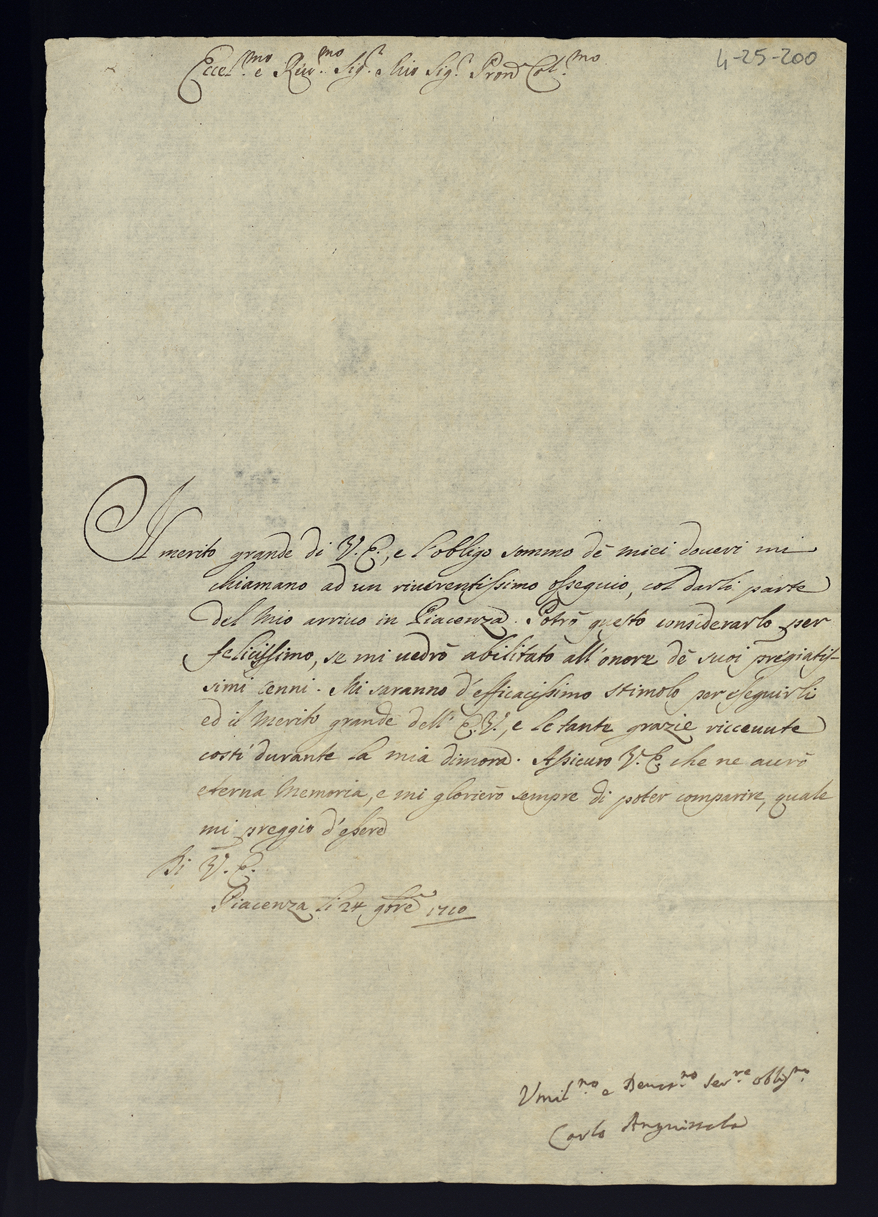 4-25-200
Eccel.mo e Rev.mo Sig.r Mio Sig.r Pron Col.mo
Il merito grande di V. E., e l'obligo sommo dè miei doueri mi
chiamano ad un riuerentissimo ossequio, col darli parte
del Mio arriuo in Piacenza. Potrò questo considerarlo per
felicissimo, se mi uedrò abilitato all'onore dè suoi pregiatis-
simi cenni. Mi saranno d'efficacissimo stimolo per eseguirli
ed il Merito grande dell' E. V., e le tante grazie riceuute
costi durante la mia dimora. Assicuro V. E. che ne aurò
eterna Memoria, e mi glorierò sempre di poter comparire, quale
mi preggio d'essere
Di V. E.
Piacenza li 24 9bre 1710
Vmil.mo e Deuot.mo Ser.re obblig.mo
Carlo Anguissola